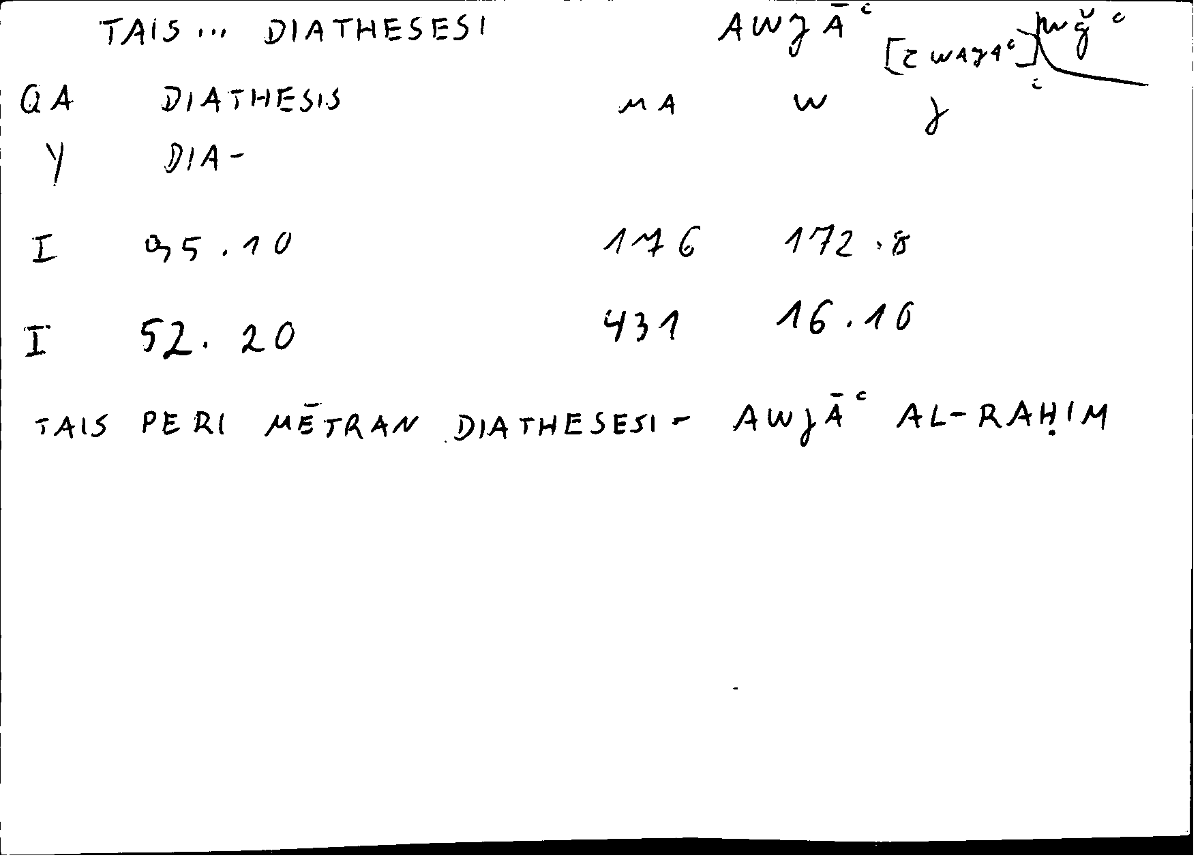 TAIS ... DIATHESESI AWJĀʿ [Σ WAJAʿ] wǧʿ
QA DIATHESIS MA W J ʿ
Y DIA-
I 95.10 1176 172.8
I 52.20 431 16.10
TAIS PERI MĒTRAN DIATHESESI - AWJĀʿ AL-RAḤIM